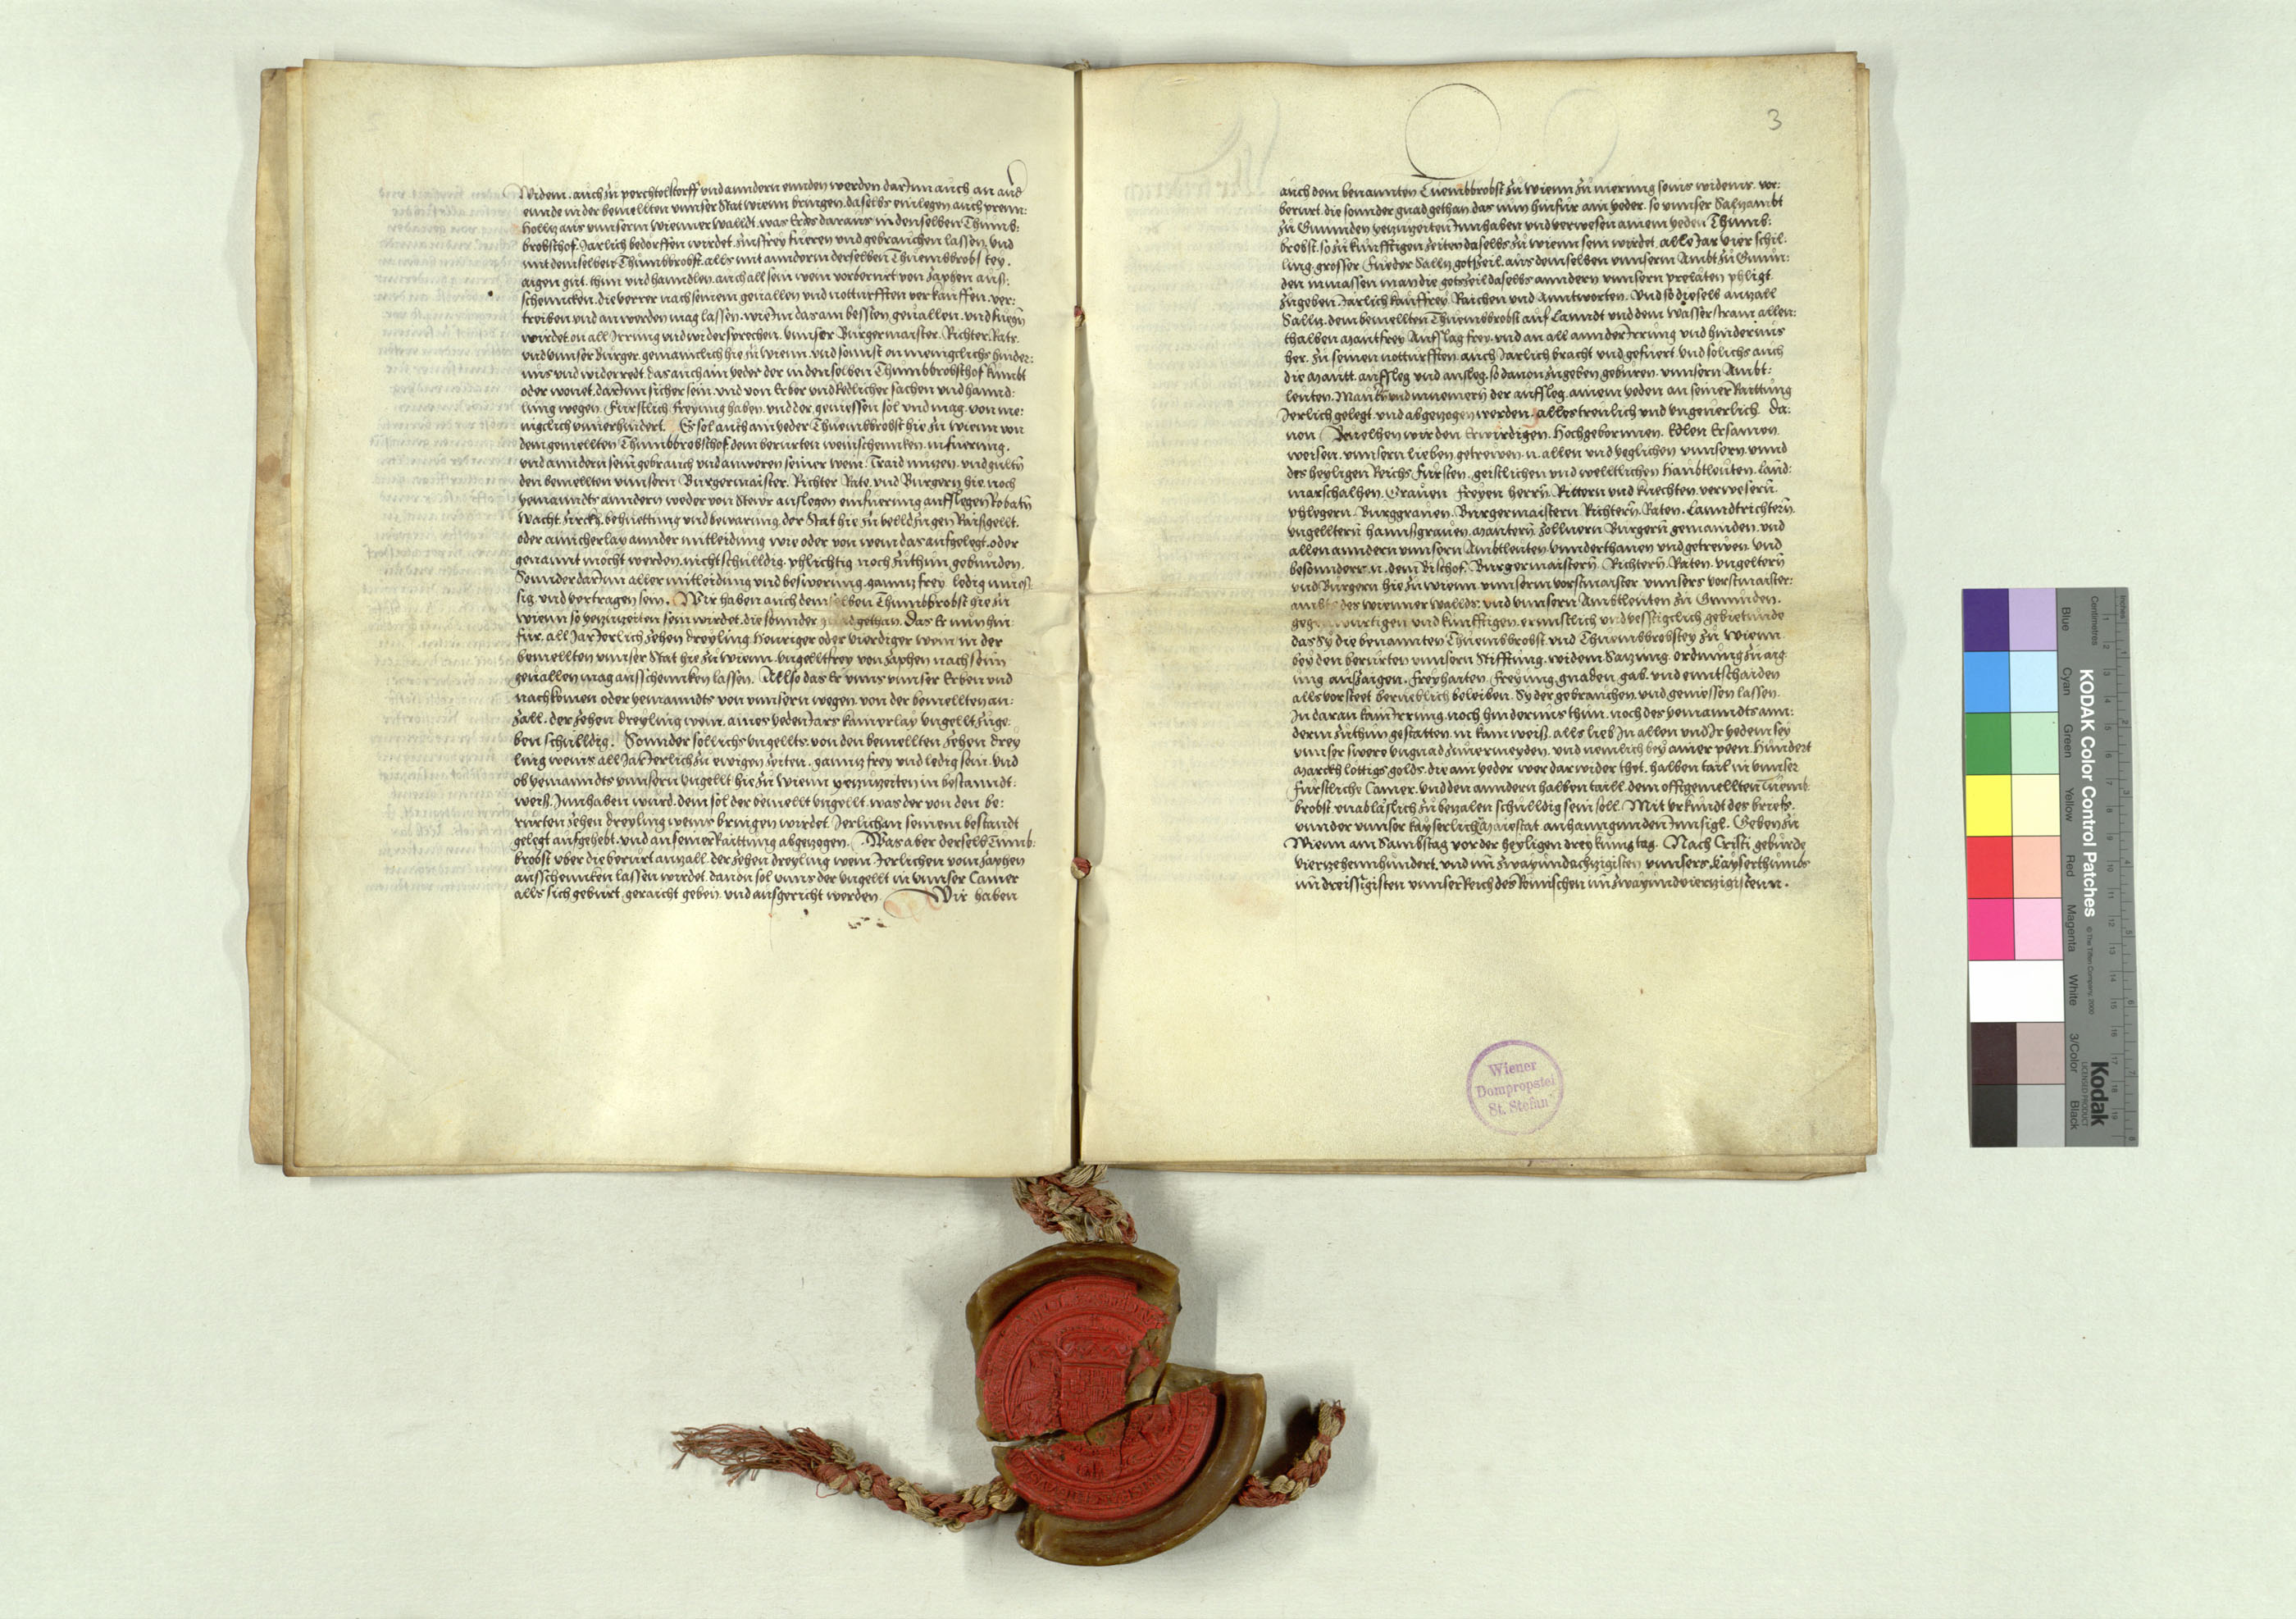 Widem. auch zu perchtolstorff vnd anndern ennden werden darInn auch an and
ennde in der bemellten vnnser Stat wienn bringen. daselbs einlegen auch prenn:
holltz aus vnnserm wienner walldt. was Er des daraus in denselben Thumb:
brobsthof Jarlich bedorffen wirdet. zu frey fueren vnd gebrauchen lassen. vnd
mit demselben Thumbbrobst. alls mit anndern derselben Thuembbrobstey.
aigen gut. thun vnd hanndlen. auch all sein wein vorberurt von zaphen auß:
schenncken. die verrer nach seinem geuallen vnd notturfften verkauffen. ver:
treiben vnd an werden mag lassen. wie Im das am bessten geuallen. vnd fuegn
wirdet. on all Irrung vnd widersprechen. vnnser Burgermaister. Richter. Rats
vnd vnnser Burger gemainclich hie zu wienn. vnd sonnst on menigclichs hinder:
nus vnd widerredt. das auch ain yeder der in denselben Thumbbrobsthof kumbt
oder wonet. darInn sicher sein. vnd von Erber vnd Redlicher sachen vnd hannd:
lung wegen. Furstlich Freyung haben. vnd der geniessen sol vnd mag. von me:
nigclich vnuerhindert. Es sol auch ain yeder Thuembbrobst hie zu wienn von
dem gemellten Thumbbrobsthof. dem berurten weinschenncken. infuerung.
vnd anndern sein gebrauch vnd anweren seiner wein. Traid nutzen. vnd gultn
den bemellten vnnsern Burgermaister. Richter Rate. vnd Burgern hie. noch
yemanndts anndern weder von Stewr anslegen einfuerung aufflegen Robatn
wacht. zirckh. behuettung vnd bewarung. der Stat hie zu velld zugen Raißgellt.
oder ainicherlay annder mitleidung wie oder von wem das aufgelegt. oder
genannt mocht werden. nicht schulldig. phlichtig noch zuthun gebunden.
Sonnder darInn aller mitleidung vnd beswerung. ganntz frey ledig mues:
sig. vnd vertragen sein. Wir haben auch demselben Thumbbrobst hie zu
wienn so yezuzeiten sein wirdet. die sonnder gnad gethan. Das Er nun hin:
fur. all Jar Jerlich zehen dreyling. heuriger oder vierdiger wein in der
bemellten vnnser Stat hie zu wienn. vngelltfrey von zaphen nach seinn
geuallen mag ausschenncken lassen. Allso das Er vnns vnnser Erben vnd
nachkomen oder yemanndts von vnnsern wegen. von der bemellten an:
zall. der zehen dreyling wein. aines yeden Jars kainerlay vngellt zuge:
ben schulldig. Sonnder sollichs vngellts. von den bemellten zehen drey
ling weins all Jar Jerlich zu ewigen zeiten. ganntz frey vnd ledig sein. vnd
ob yemanndts vnnsern vngellt hie zu wienn yezuzeiten in bestanndt:
weiß. Innhaben wurd. dem sol der bemellt vngellt. was der von den be:
rurten zehen dreyling weins bringen wirdet. Jerlich an seinem bestandt
gelegt aufgehebt. vnd an seiner Raittung abgezogen. Was aber derselb Tumb:
brobst vber die berurt anzall. der zehen dreyling wein Jerlichen vom zaphen
ausschenncken lassen wirdet. dauon sol vnns der vngellt in vnnser Camer
alls sich geburt. geraicht geben. vnd ausgericht werden. Wir haben
3
auch dem benannten Tuembbrobst zu wienn zu merung seins widems. vor:
berurt. die sonnder gnad gethan. das nun hinfur ain yeder. so vnnser Saltzambt
zu Gmunden yezuzeiten Innhaben vnd verwesen ainem yeden Thumb:
brobst. so zu kunfftigen zeiten daselbs zu wienn sein wirdet. alle Jar vier schil:
ling. grosser Fueder Salltz gotzheil. aus demselben vnnserm Ambt zu Gmun:
den inmassen man die gotzheil daselbs anndern vnnsern prelaten phligt
zugeben. Jarlich kauffrey. Raichen vnd Anntworten. Vnd so dieselb anzall
Salltz. dem bemellten Thuembbrobst auf Lanndt vnd dem wasserstram allen:
thalben Mautfrey Aufslag frey. vnd an all annder Irrung vnd hindernus
her. zu seinen notturfften. auch Jarlich bracht vnd gefuert. vnd solichs auch
die Mautt. auffsleg vnd ansleg. so dauon zugeben geburen. vnnsern Ambt:
leuten. Mautt vnd Innemern der auffsleg. ainem yeden an seiner Raittung
Jerlich gelegt. vnd abgezogen werden. alles treulich vnd vngeuerlich. Da:
uon Beuelhen wir den Erwirdigen. Hochgebornnen. Edlen Ersamen.
weisen. vnnsern lieben getrewen. n. allen vnd yeglichen vnnsern. vnnd
des heyligen Reichs Fursten. geistlichen vnd welltlichen Haubtleuten. Land:
marschalhen. Grauen Freyen herrn. Rittern vnd knechten. verwesern.
phlegern. Burggrauen. Burgermaistern Richtern. Raten. Lanndtrichtern.
vngelltern hannßgrauen. Mautern zollnern Burgern gemainden. vnd
allen anndern vnnsern Ambtleuten vnnderthanen vnd getrewen. vnd
besonnders. n. dem Bischof. Burgermaistern. Richtern. Raten. vngeltern
vnd Burgern hie zu wienn. vnnserm vorstmaister vnnsers vorstmaister:
ambts des wienner wallds. vnd vnnsern Ambtleuten zu Gmunden.
gegenwurtigen vnd kunfftigen. ernnstlich vnd vesstigclich gebietunde
das Sy die benannten Thuembbrobst vnd Thuembbrobstey zu wienn
bey den berurten vnnsern Stifftung. widem Satzung. ordnung zuaig:
ung. auszaigen. Freyhaiten. Freyung. gnaden. gab. vnd enntschaiden
alls vorsteet beruiblich beleiben. Sy der gebrauchen. vnd geniessen lassen.
In daran kain Irrung. noch hindernus thun. noch des yemanndts ann:
dern zuthun gestatten. in kain weiß. alls lieb In allen vnd Ir yedem sey
vnnser swere vngnad zuuermeyden. vnd nemlich bey ainer peen. Hundert
Marckh lottigs golds. die ain yeder wer darwider thet. halben tail in vnnser
furstliche Camer. vnd den anndern halben taill. dem offtgemellten Tuemb:
brobst. vnablaslich zu betzalen schulldig sein soll. Mit vrkundt des briefs.
vnnder vnnser kayserlichen Maiestat anhanngundem Innsigl. Geben zu
Wienn am Sambstag vor der heyligen drey kunig tag. Nach Cristi geburde
vierzehennhundert. vnd im zwayundachzigisten vnnsers. Kayserthumbs
im dreissigisten vnnser Reich des Romischen im zwayundvierzigistenn.
Wiener
Dompropstei
St. Stefan
KODAK Color Control Patches
© The Tiffen Company, 2000
Kodak
LICENSED PRODUCT
Centimetres
Inches
Blue
Cyan
Green
Yellow
Red
Magenta
White
3/Color
Black